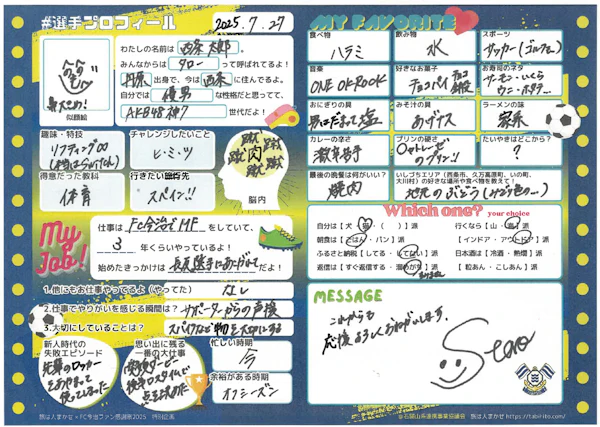 #選手プロフィール
2025.7.27
わたしの名前は 西条太郎、
みんなからは タロー って呼ばれてるよ!
出身で、今は 西条 に住んでるよ。
自分では 優男 な性格だと思ってて、
AKB48神7 世代だよ!
似顔絵
趣味・特技
リフティング∞
チャレンジしたいこと
ヒ・ミ・ツ
得意だった教科
体育
行きたい旅行先
スペイン!!
蹴 蹴 蹴 肉 蹴
脳内
My Job!
仕事は FC今治でMF をしていて、
3 年くらいやっているよ!
始めたきっかけは 長友選手にあこがれて だよ!
1.他にもお仕事やってるよ(やってた) なし
2.仕事でやりがいを感じる瞬間は? サポーターからの声援
3.大切にしていることは? スパイクなど物を大切にする
新人時代の
失敗エピソード
先輩のロッカー
をあやまって
使っていた
思い出に残る
一番の大仕事
点を決めた
忙しい時期
今
余裕がある時期
オフシーズン
旅は人まかせ × FC今治ファン感謝祭2025 特別企画
MY FAVORITE
食べ物
ハラミ
飲み物
水
スポーツ
サッカー(ゴルフ)
音楽
ONE OK ROCK
好きなお菓子
チョコパイ
お寿司のネタ
サーモン・いくら
ウニ・ホタテ
おにぎりの具
塩
みそ汁の具
あげナス
ラーメンの味
家系
カレーの辛さ
激辛苦手
プリンの硬さ
のプリン!!
たいやきはどこから?
?
最後の晩餐は何がいい?
焼肉
いしづちエリア(西条市、久万高原町、いの町、
大川村)の好きな場所や食べ物を教えて!
地元のぶどう
Which one? your choice
自分は【犬・猫・( )】派
行くなら【山・海】派
朝食は【ごはん・パン】派
【インドア・アウトドア】派
ふるさと納税【してる・してない】派
日本酒は【冷酒・熱燗】派
返信は【すぐ返信する・溜めがち】派
【粒あん・こしあん】派
MESSAGE
これからも
応援よろしくおねがいします。
旅は人まかせ https://tabi-ito.com/